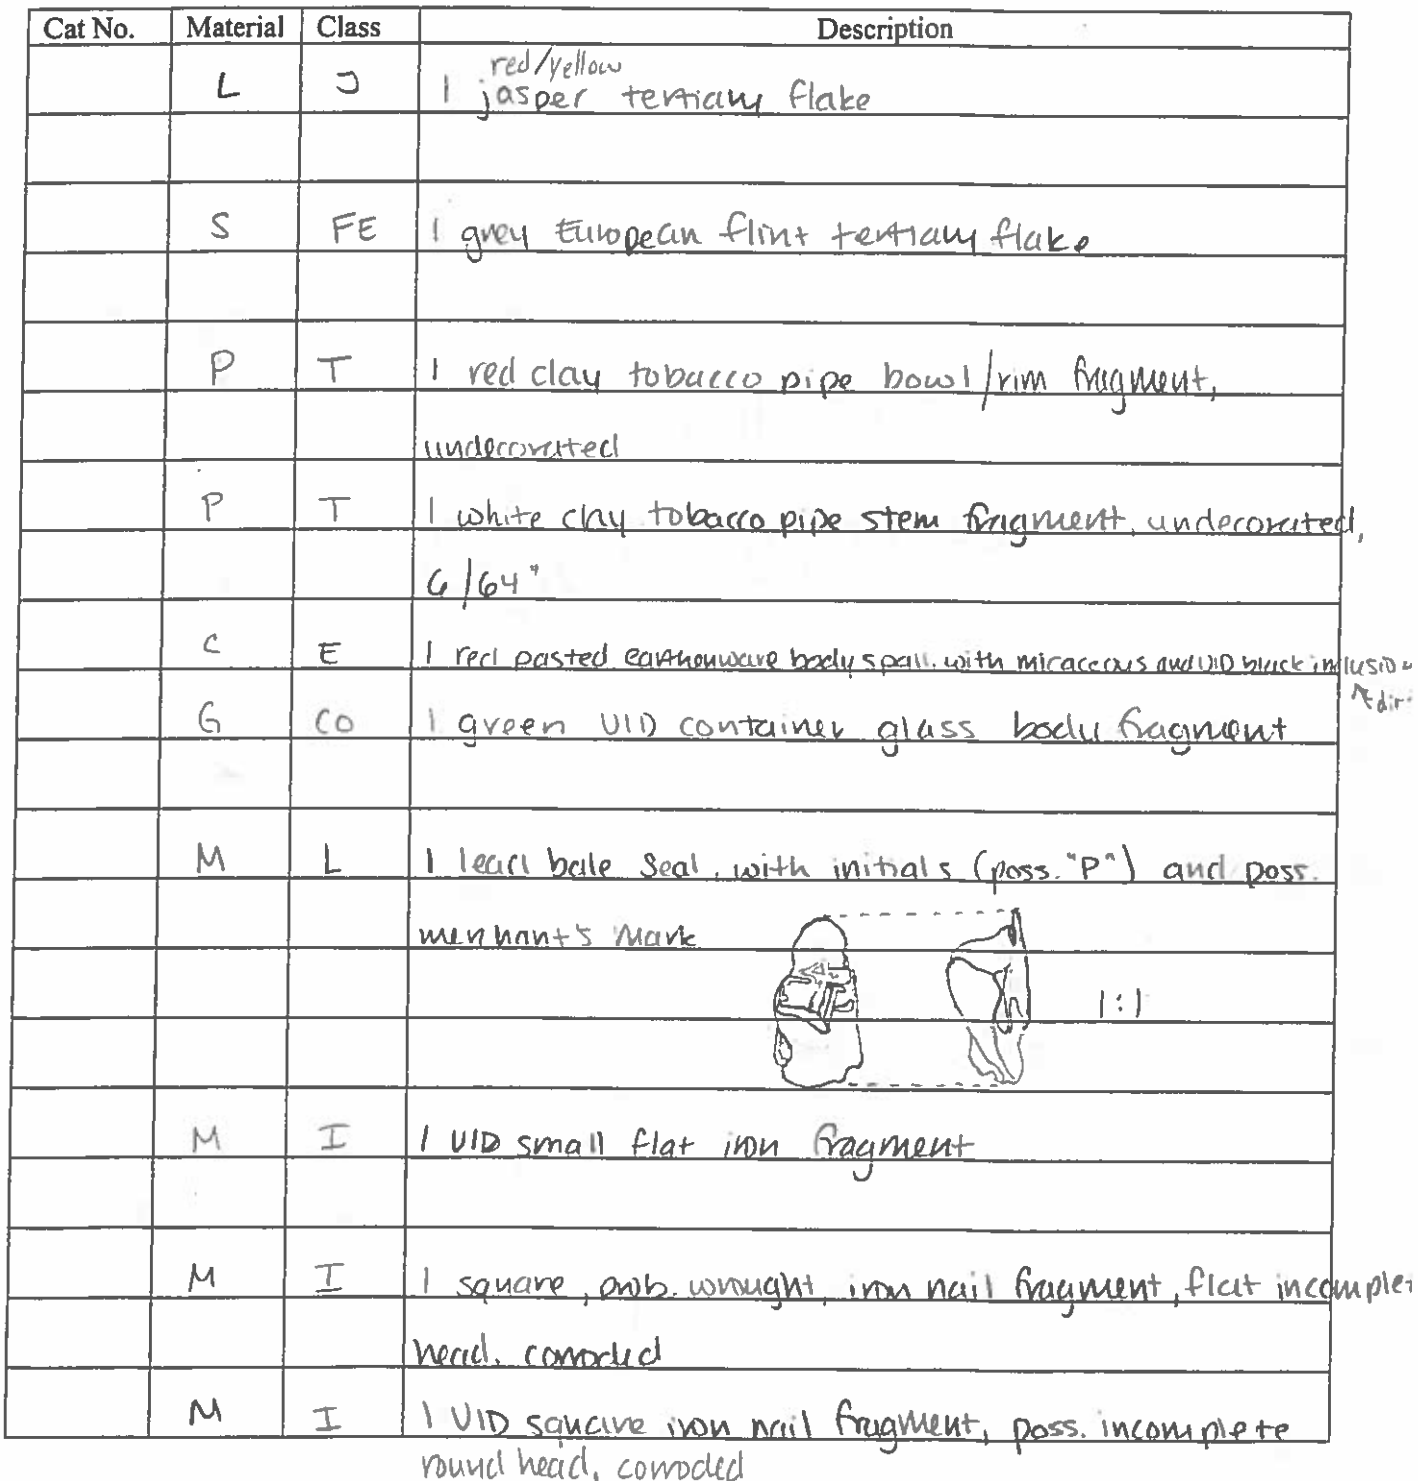 Cat No. Material Class Description
red/yellow
L J 1 jasper tertiary flake
S FE 1 grey European flint tertiary flake
P T 1 red clay tobacco pipe bowl/rim fragment,
undecorated
P T 1 white clay tobacco pipe stem fragment, undecorated,
6/64"
C E 1 red pasted earthenware body spall, with micaceous and UID black inclusio
G CO 1 green UID container glass body fragment
M L 1 lead bale seal, with initials (poss. "P") and poss.
merchant's mark
1:1
M I 1 UID small flat iron fragment
M I 1 square, prob. wrought, iron nail fragment, flat incomplet
head, corroded
M I 1 UID square iron nail fragment, poss. incomplete
round head, corroded